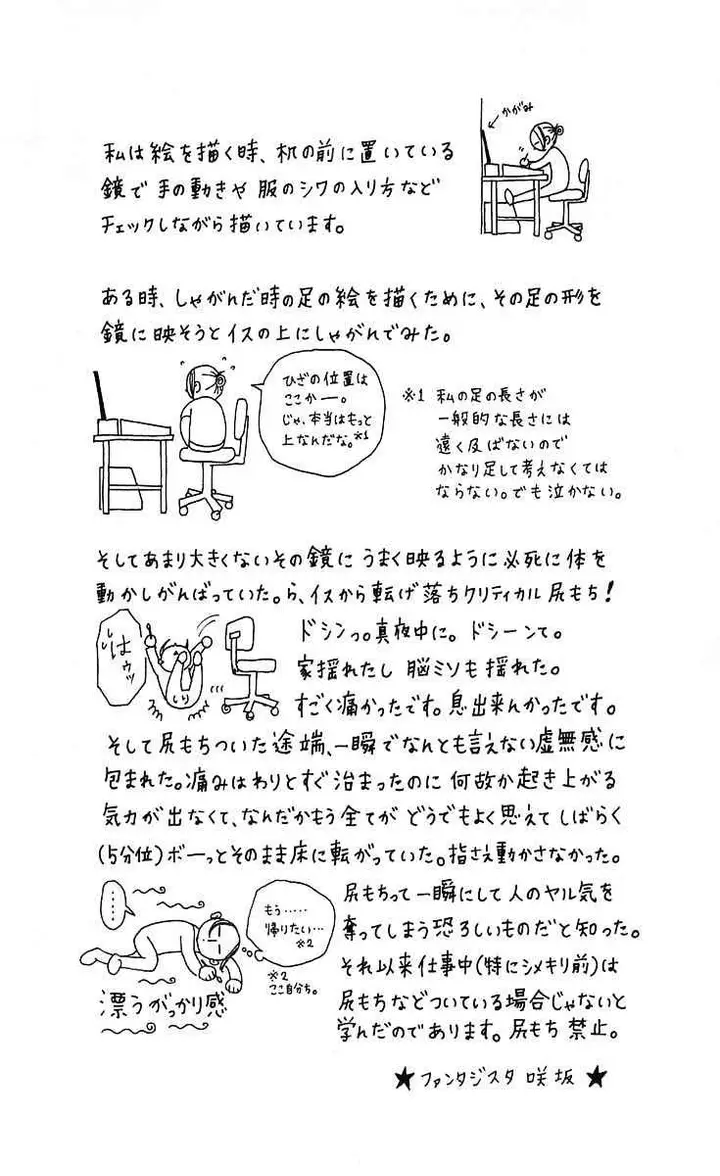 かがみ
私は絵を描く時、机の前に置いている
鏡で手の動きや服のシワの入り方など
チェックしながら描いています。
ある時、しゃがんだ時の足の絵を描くために、その足の形を
鏡に映そうとイスの上にしゃがんでみた。
ひざの位置は
ここかー。
じゃ、本当はもっと
上なんだな。※1
※1 私の足の長さが
一般的な長さには
遠く及ばないので
かなり足して考えなくては
ならない。でも泣かない。
そしてあまり大きくないその鏡にうまく映るように必死に体を
動かしがんばっていた。ら、イスから転げ落ちクリティカル尻もち!
はぅッ
しり
ドシンっ。真夜中に。ドシーンて。
家揺れたし脳ミソも揺れた。
すごく痛かったです。息出来んかったです。
そして尻もちついた途端、一瞬でなんとも言えない虚無感に
包まれた。痛みはわりとすぐ治まったのに何故か起き上がる
気力が出なくて、なんだかもう全てがどうでもよく思えてしばらく
(5分位)ボーっとそのまま床に転がっていた。指さえ動かさなかった。
……
もう……
帰りたい…
※2
※2
ここ自分ち。
漂うがっかり感
尻もちって一瞬にして人のヤル気を
奪ってしまう恐ろしいものだと知った。
それ以来仕事中(特にシメキリ前)は
尻もちなどついている場合じゃないと
学んだのであります。尻もち禁止。
★ファンタジスタ咲坂★